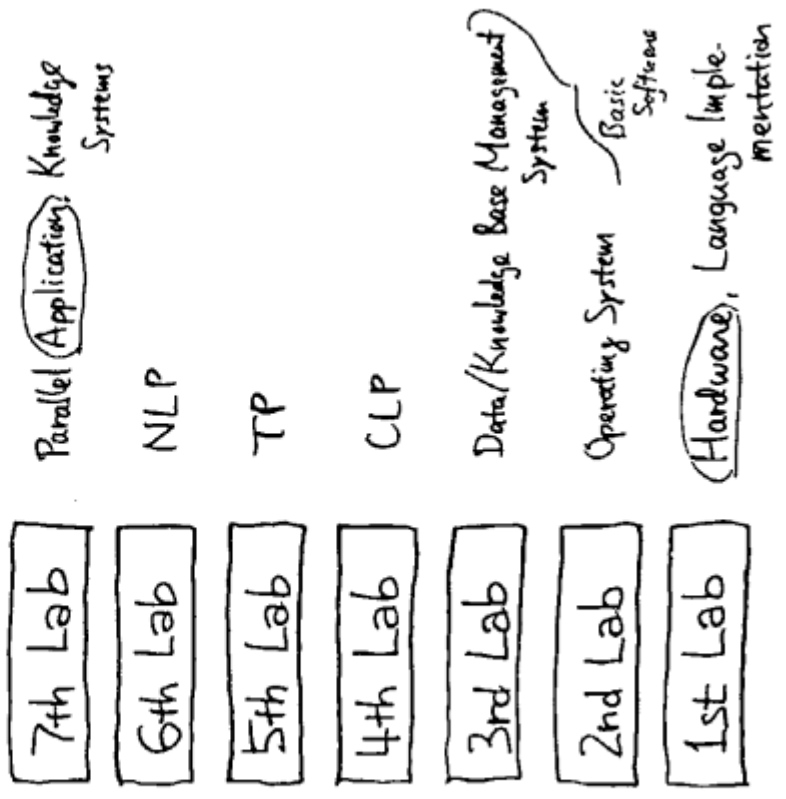 7th Lab Parallel Application, Knowledge
Systems
6th Lab NLP
5th Lab TP
4th Lab CLP
3rd Lab Data/Knowledge Base Management
System
2nd Lab Operating System
Basic
Software
1st Lab Hardware, Language Imple-
mentation